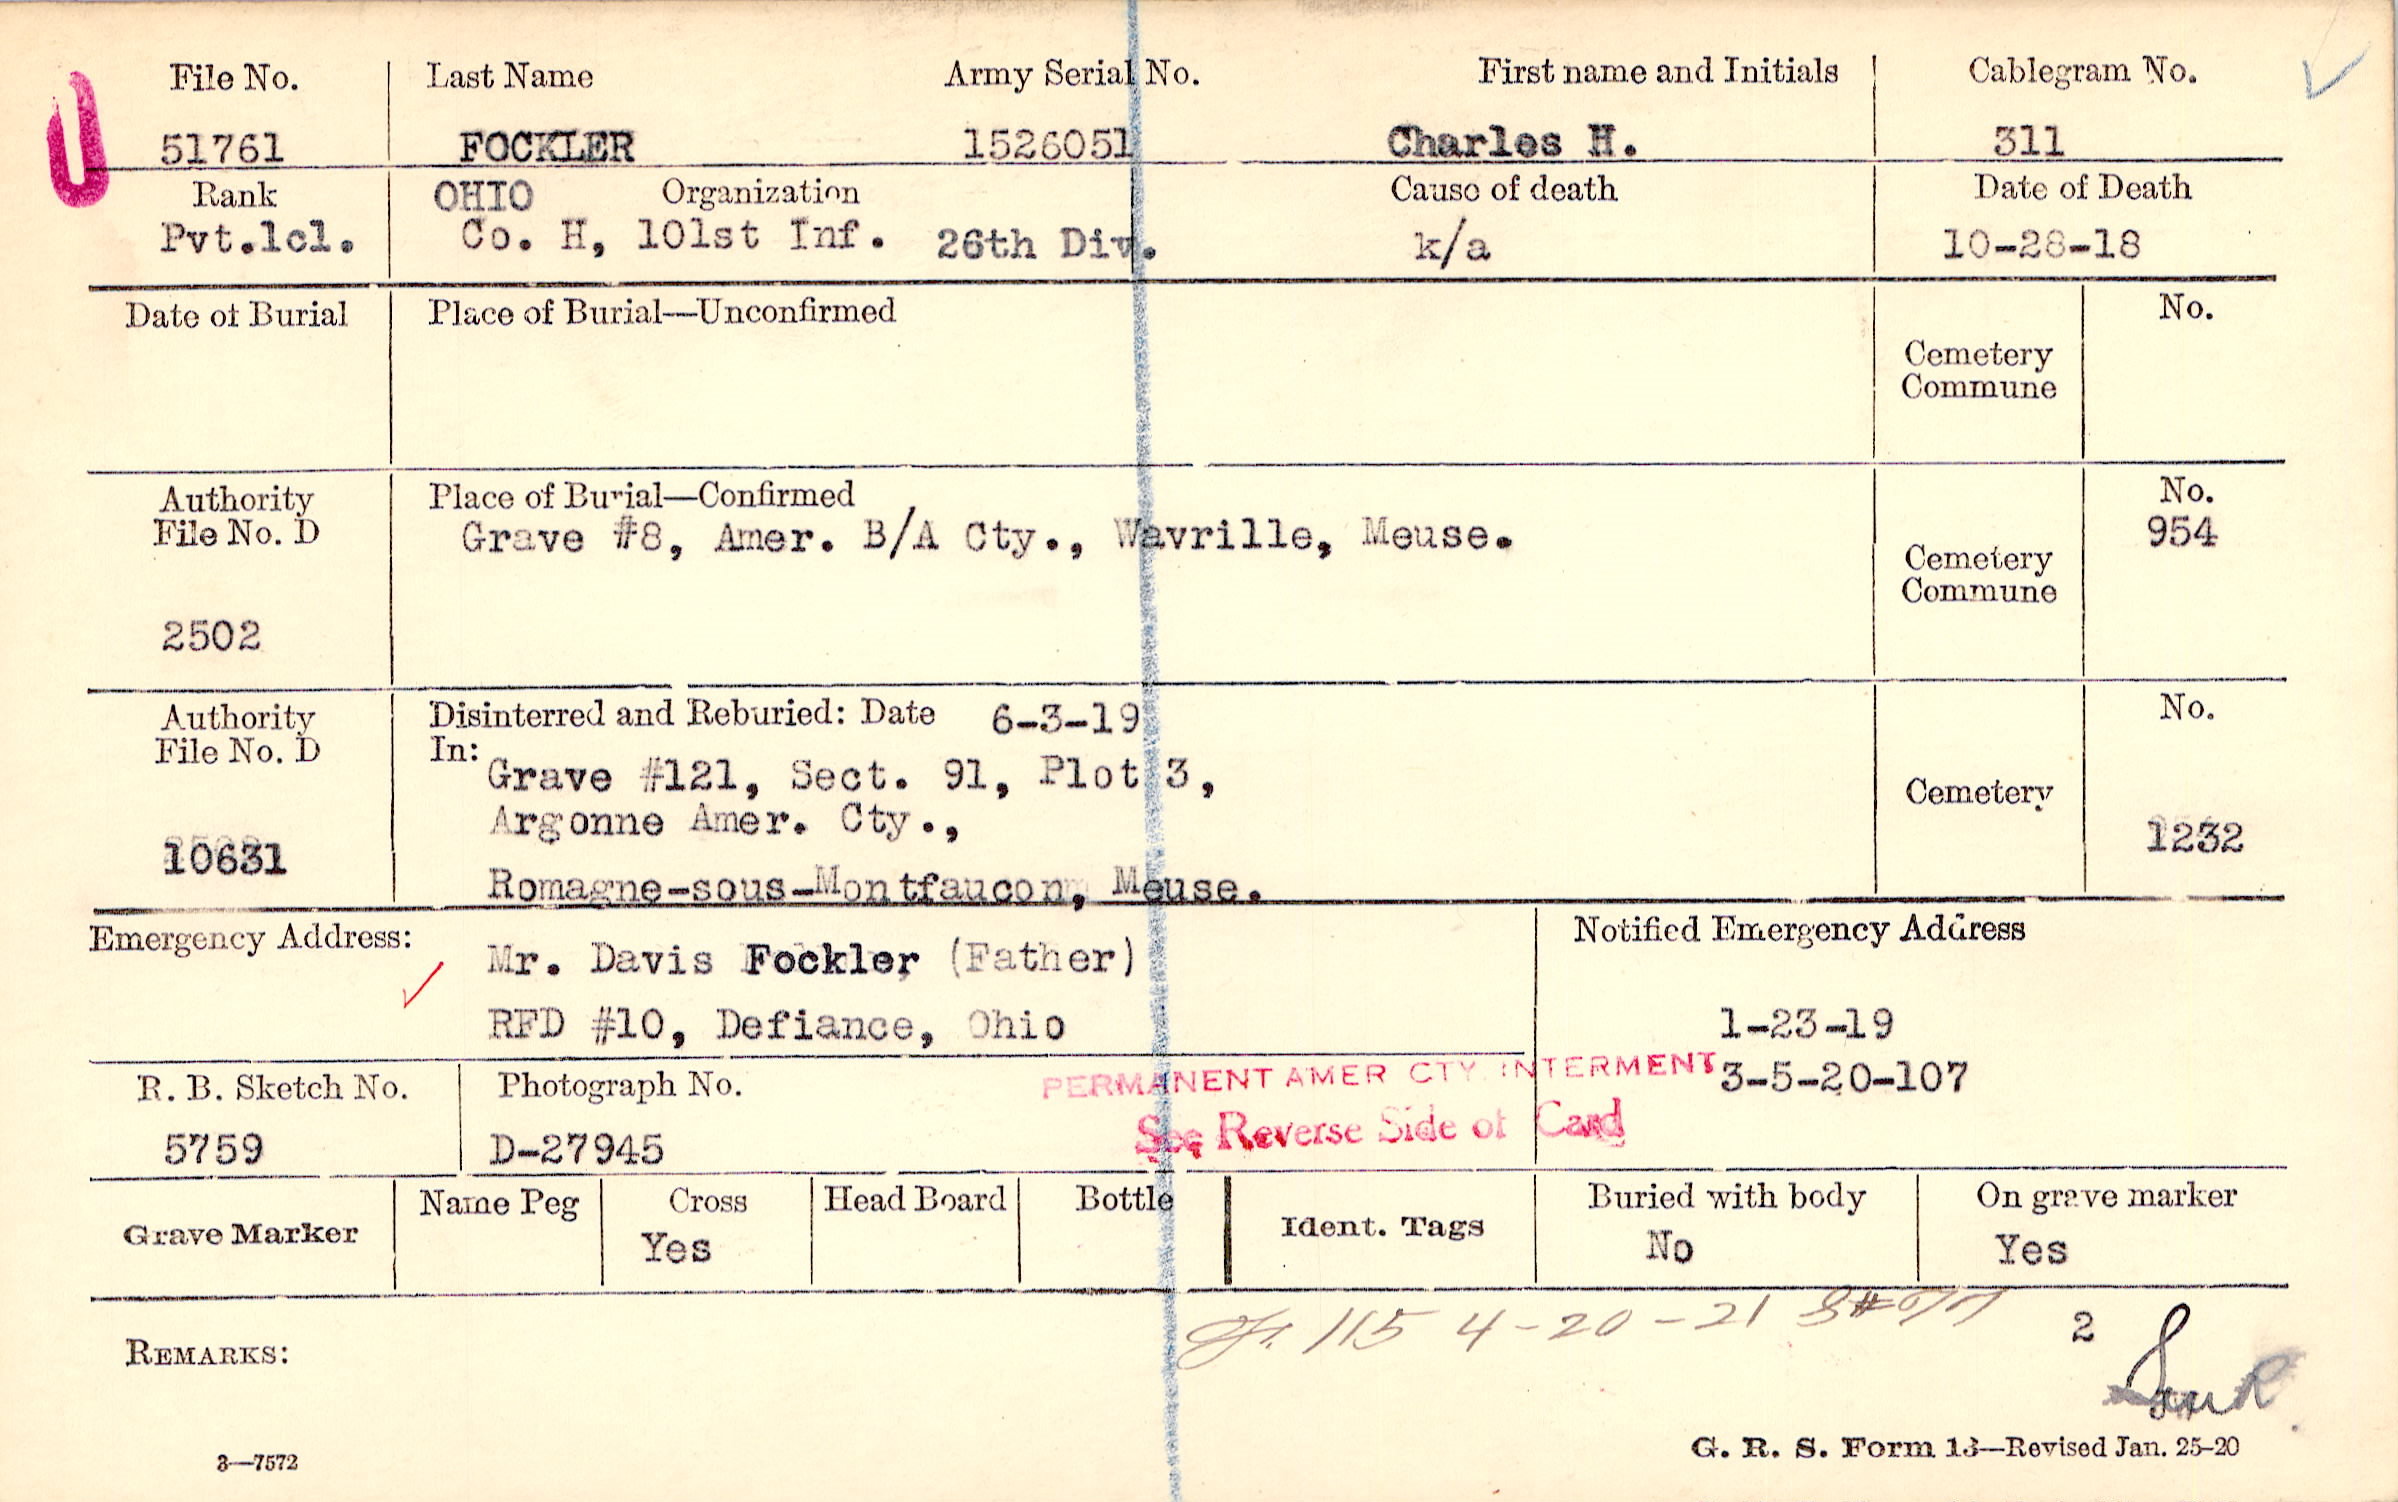 File No. Last Name Army Serial No. First name and Initials Cablegram No.
51761 FOCKLER 1526051 Charles H. 311
Rank OHIO Organization Cause of death Date of Death
Pvt.1cl. Co. H, 101st Inf. 26th Div. k/a 10-28-18
Date of Burial Place of Burial—Unconfirmed No.
Cemetery
Commune
Authority Place of Burial—Confirmed No.
File No. D Grave #8, Amer. B/A Cty., Wavrille, Meuse. 954
Cemetery
Commune
2502
Authority Disinterred and Reburied: Date 6-3-19 No.
File No. D In:
Grave #121, Sect. 91, Plot 3,
Cemetery
Argonne Amer. Cty.,
10631 1232
Romagne-sous-Montfaucon, Meuse.
Emergency Address: Notified Emergency Address
Mr. Davis Fockler (Father)
RFD #10, Defiance, Ohio 1-23-19
PERMANENT AMER CTY INTERMENT 3-5-20-107
R. B. Sketch No. Photograph No.
See Reverse Side of Card
5759 D-27945
Grave Marker Name Peg Cross Head Board Bottle Ident. Tags Buried with body On grave marker
Yes No Yes
115 4-20-21 2
REMARKS:
3—7572 G. R. S. Form 13—Revised Jan. 25-20